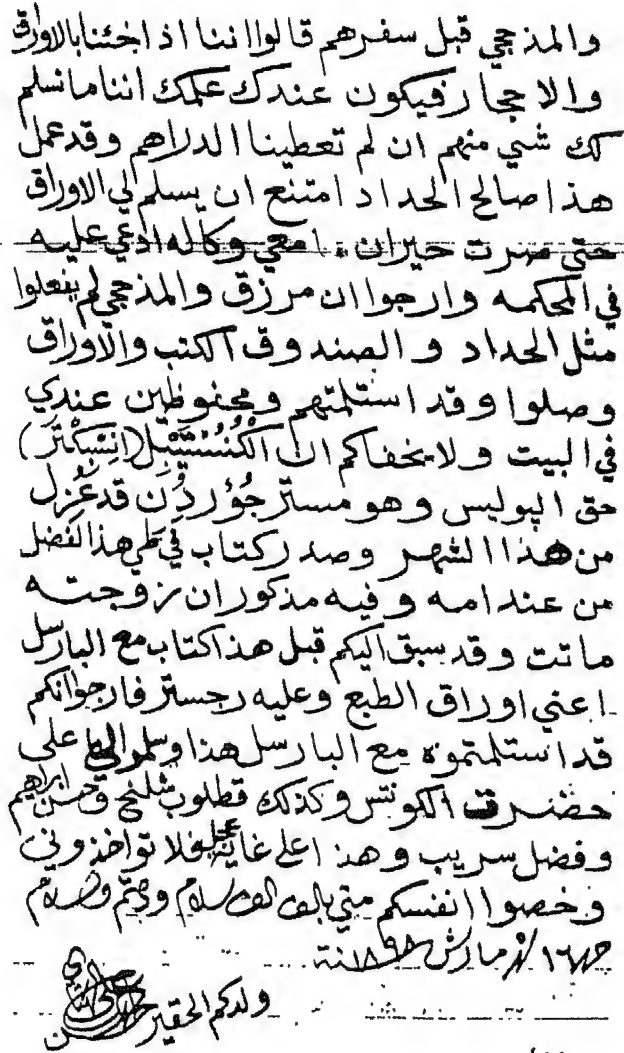 والمذحجي قبل سفرهم قالوا اننا اذا جئنا بالاوراق
والاحجار فيكون عندك علمك اننا ما نسلم
لك شي منهم ان لم تعطينا الدراهم وقد عمل
هذا صالح الحداد امتنع ان يسلم لي الاوراق
حتى صرت حيران امعي وكاله ادعي عليه
في المحكمه وارجوا ان مرزق والمذحجي لم يفعلوا
مثل الحداد والصندوق الكتب والاوراق
وصلوا وقد استلمتهم ومحفوظين عندي
في البيت ولا يخفاكم ان الكُنُسْتِيْبِل (اِنْسِبِكْتَر)
حق البوليس وهو مستر جُوْرْدُن قد عُزِل
من هذا الشهر وصدر كتاب في طي هذا لفضل
من عند امه وفيه مذكور ان زوجته
ماتت وقد سبق اليكم قبل هذا كتاب مع البارسل
اعني اوراق الطبع وعليه رجستر فارجوا انكم
قد استلمتموه مع البارسل هذا وسلموا لي على
حضرت الكونتس وكذلك قطلوب شلنج وحسن ابراهيم
وفضل سريب وهذا على غاية عجل فلا تواخذوني
وخصوا انفسكم مني بالف الف سلام ودمتم والسلام
١٦ شهر مارش ١٨٩٨ سنة
ولدكم الحقير